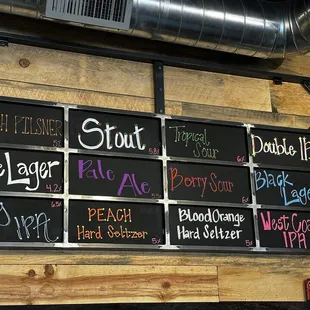 H PILSNER
Stout
5.8%
Tropical
Sour
6%
Double IP
Lager
4.2
Pale Ale
5.5%
Berry Sour
6%
Black Lage
IPA
6.5%
PEACH
Hard Seltzer
5%
Blood Orange
Hard Seltzer
5%
West Coa
IPA